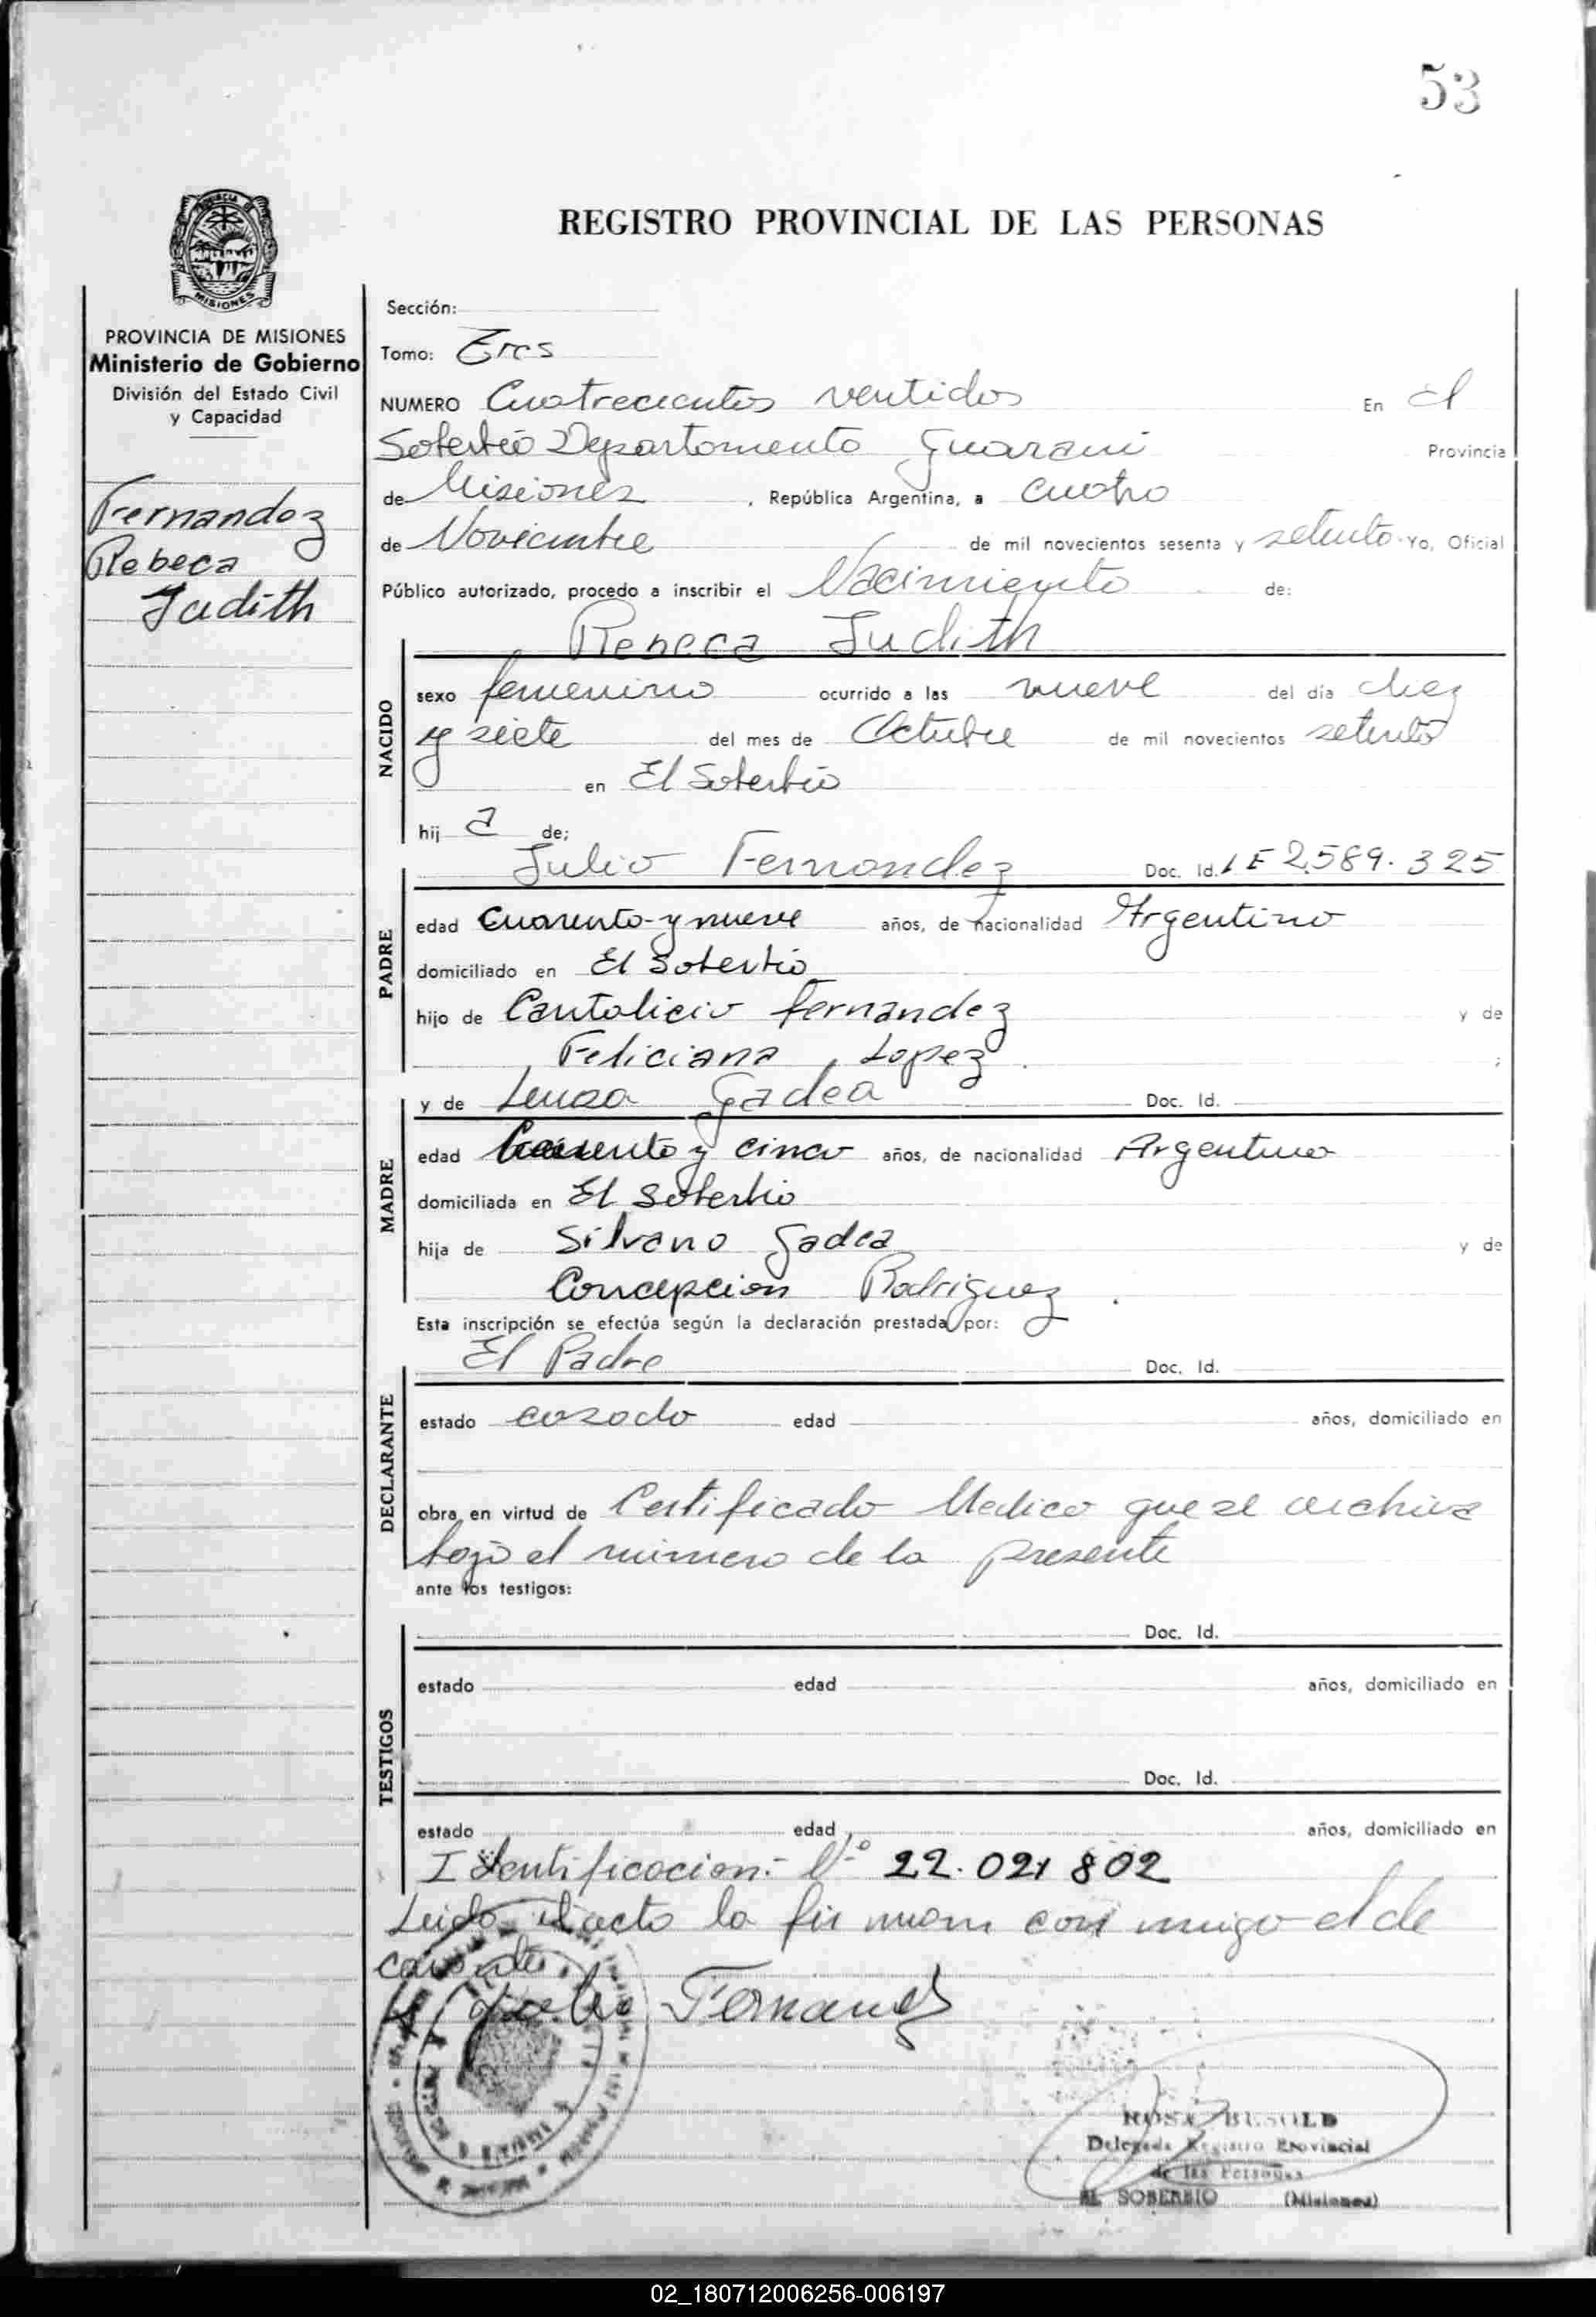 53
REGISTRO PROVINCIAL DE LAS PERSONAS
PROVINCIA DE MISIONES
Ministerio de Gobierno
División del Estado Civil
y Capacidad
Fernandez
Rebeca
Judith
Sección:
Tomo: Tres
NUMERO Cuatrecientos ventidos En El
Soberbio Departamento Guarani Provincia
de Misiones, República Argentina, a cuatro
de Noviembre de mil novecientos sesenta y setenta Yo, Oficial
Público autorizado, procedo a inscribir el Nacimiento de:
Rebeca Judith
NACIDO
sexo femenino ocurrido a las nueve del día diez
y siete del mes de Octubre de mil novecientos setenta
en El Soberbio
hij a de;
Julio Fernandez Doc. Id. LE 2.589.325
PADRE
edad cuarenta y nueve años, de nacionalidad Argentino
domiciliado en El Soberbio
hijo de Cantalicio Fernandez y de
Feliciana Lopez ;
y de Gadea Doc. Id.
MADRE
edad y cinco años, de nacionalidad Argentina
domiciliada en El Soberbio
hija de Silvano Gadea y de
Concepcion Rodriguez .
Esta inscripción se efectúa según la declaración prestada por:
El Padre Doc. Id.
DECLARANTE
estado casado edad años, domiciliado en
obra en virtud de Certificado Medico que se archiva
bajo el número de la presente
ante los testigos:
Doc. Id.
TESTIGOS
estado edad años, domiciliado en
Doc. Id.
estado edad años, domiciliado en
Identificacion:- Nº 22.021 802
Leido el acto la fir mam con migo el de
Fernandez
ROSA BUSOLD
Delegada Registro Provincial
de las Personas
EL SOBERBIO (Misiones)
02_180712006256-006197